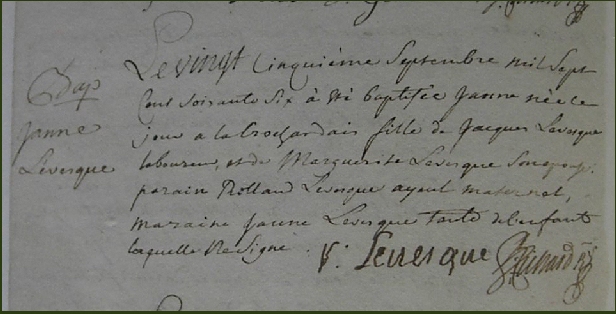 Bap
Janne
Levesque
Le vingt cinquième Septembre mil Sept
Cent Soixante Six à été baptisée Janne née le
jour a la fille de Jacques Levesque
laboureur, et de Marguerite Levesque
parain Rolland Levesque ayeul maternel,
maraine Janne Levesque tante de l'enfant
laquelle Signe. Levesque